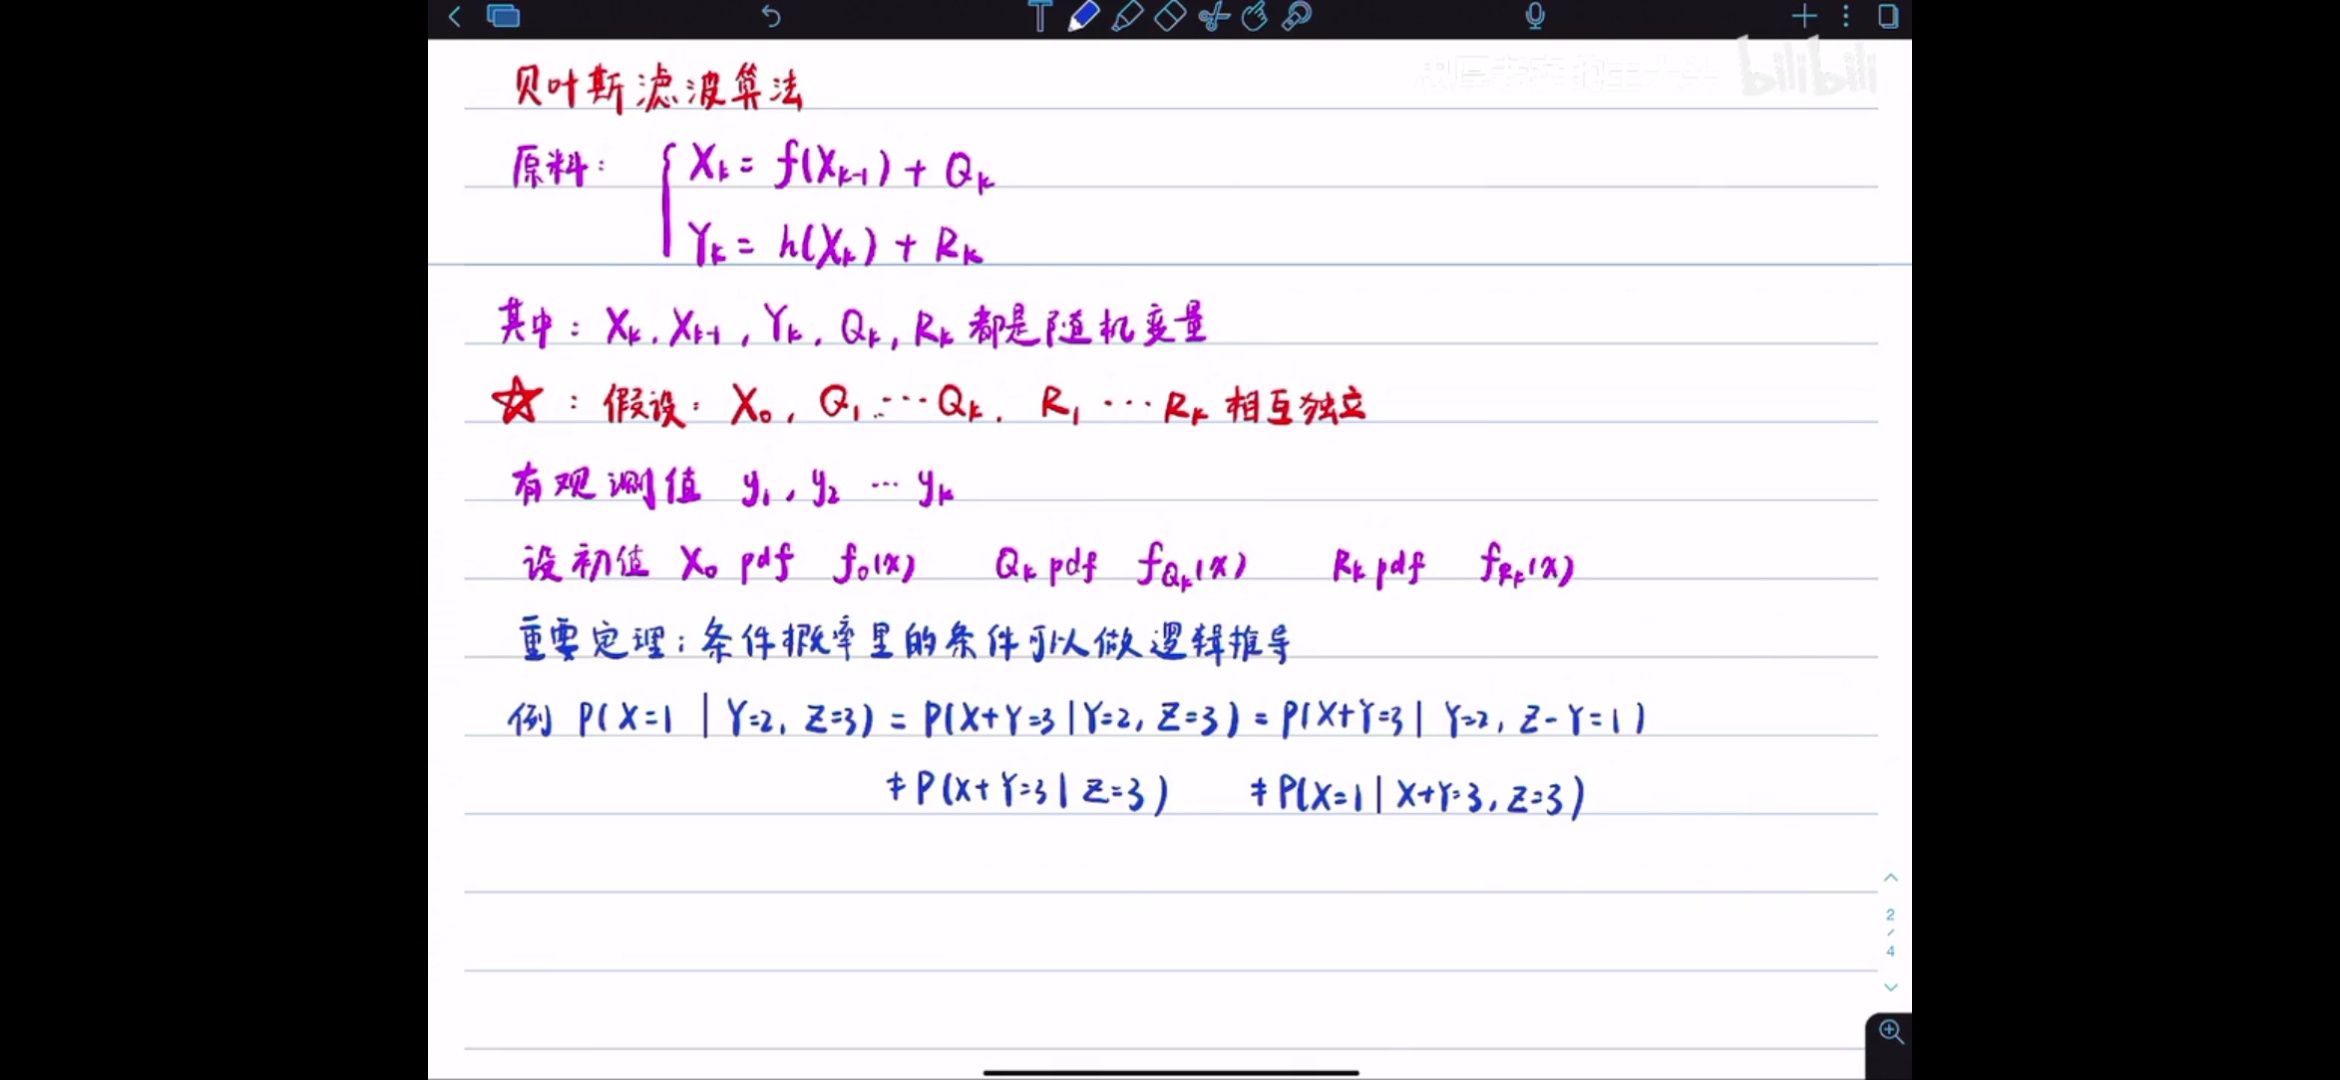 bilibili
贝叶斯滤波算法
原料: { Xk = f(Xk-1) + Qk
Yk = h(Xk) + Rk
其中: Xk, Xk-1, Yk, Qk, Rk 都是随机变量
☆: 假设: X0, Q1 … Qk, R1 … Rk 相互独立
有观测值 y1, y2 … yk
设初值 X0 pdf f0(x) Qk pdf fQk(x) Rk pdf fRk(x)
重要定理: 条件概率里的条件可以做逻辑推导
例 P(X=1 | Y=2, Z=3) = P(X+Y=3 | Y=2, Z=3) = P(X+Y=3 | Y=2, Z-Y=1)
≠ P(X+Y=3 | Z=3) ≠ P(X=1 | X+Y=3, Z=3)
2
/
4